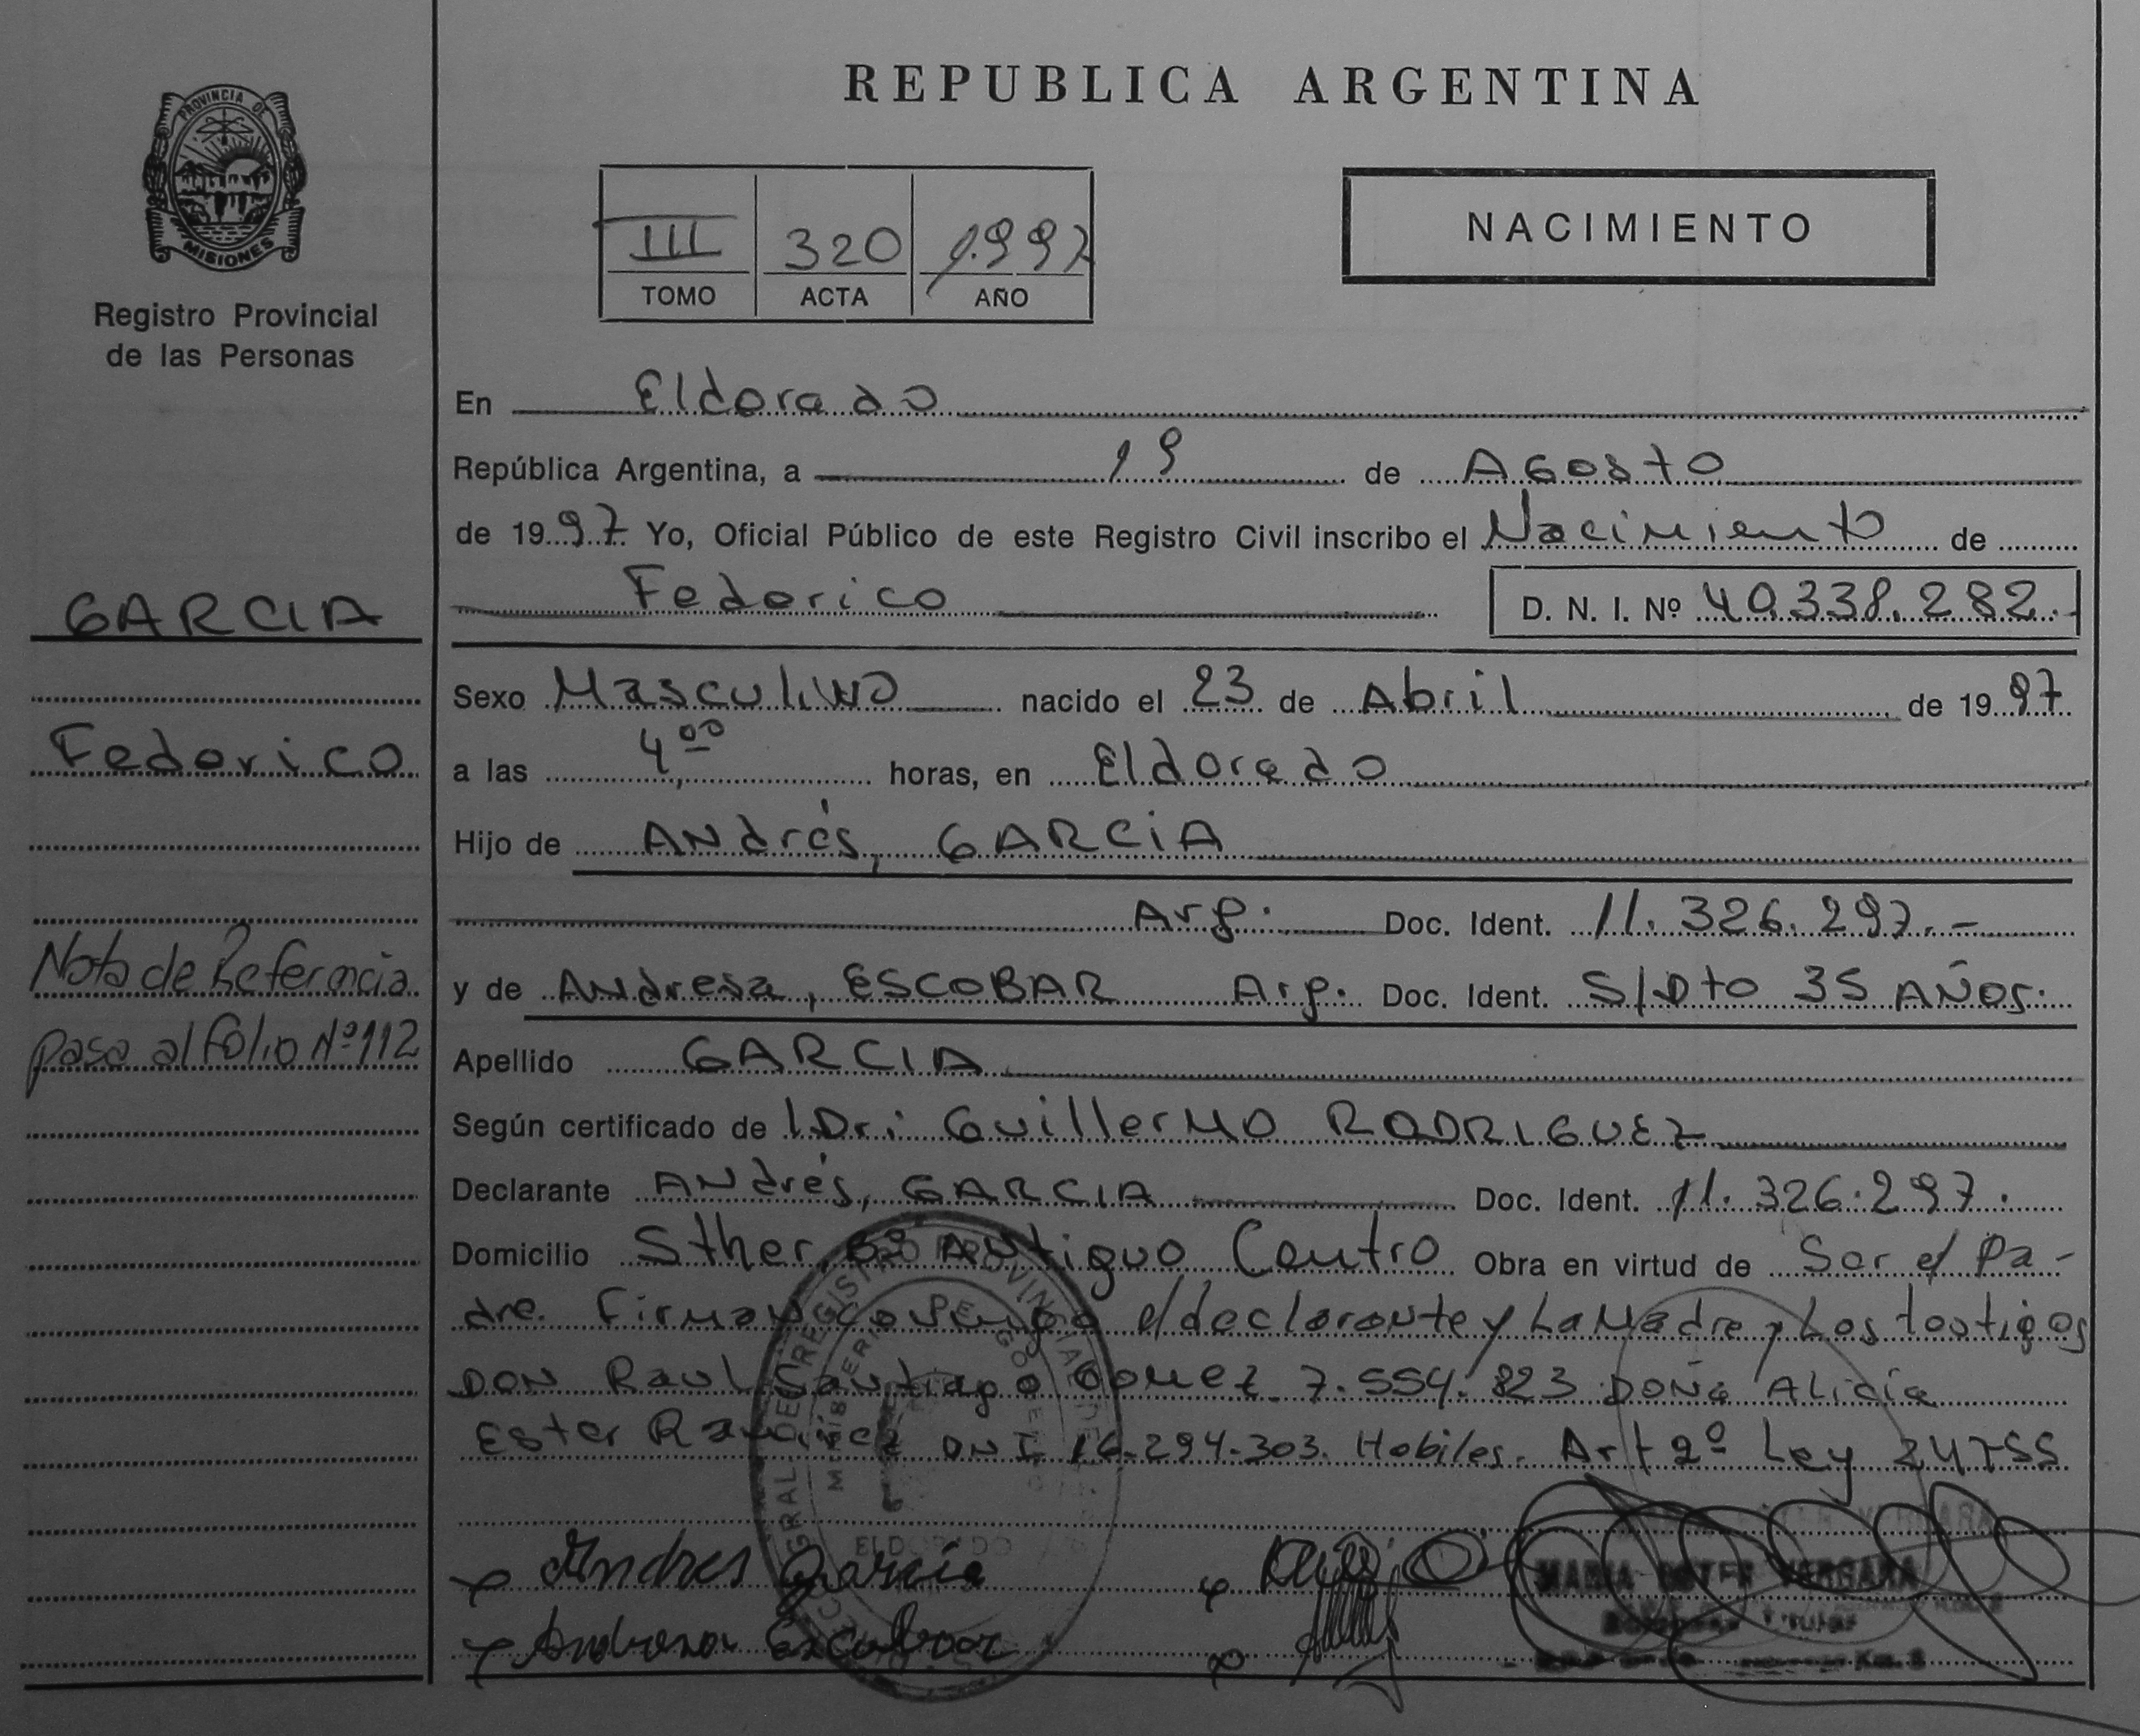 PROVINCIA DE
MISIONES
Registro Provincial
de las Personas
GARCIA
Federico
Nota de Referencia
pasa al folio Nº 112
REPUBLICA ARGENTINA
III 320 1.997
TOMO ACTA AÑO
NACIMIENTO
En Eldorado
República Argentina, a 19 de Agosto
de 1997 Yo, Oficial Público de este Registro Civil inscribo el Nacimiento de
Federico D. N. I. Nº 40.338.282.-
Sexo Masculino nacido el 23 de Abril de 1997
a las 4,00 horas, en Eldorado
Hijo de Andrés, GARCIA
Arg. Doc. Ident. 11.326.297.-
y de Andresa, ESCOBAR Arg. Doc. Ident. S/Dto 35 AÑOS.
Apellido GARCIA
Según certificado de Dr. Guillermo RODRIGUEZ
Declarante Andrés, GARCIA Doc. Ident. 11.326.297.
Domicilio Sther Bº Antiguo Centro Obra en virtud de Ser el Pa-
dre. Firman conmigo el declarante y La Madre y Los testigos
DON Raul Santiago Gomez 7.554.823 DOÑa Alicia
Ester Ramirez DNI 16.294.303. Habiles. Art 2º Ley 24755
ELDORADO
Andres Garcia
Andresa Escobar
MARIA ESTER VERGARA